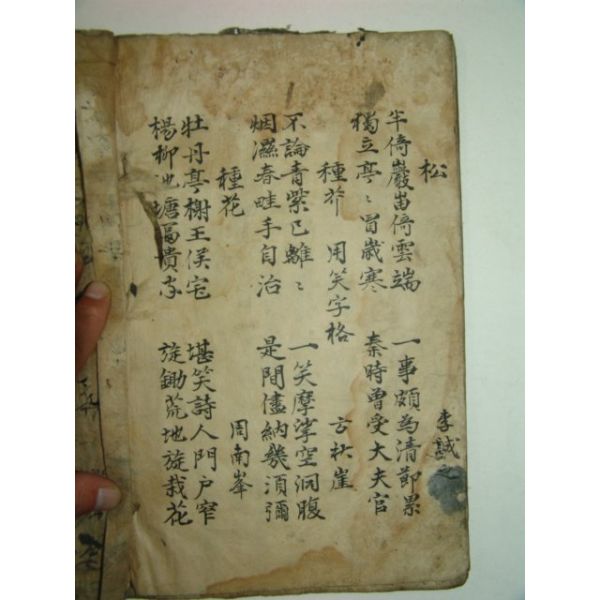 松 李誠之
半倚巖峀倚雲端 一事頗為清節累
獨立亭〻冒歲寒 秦時曾受大夫官
種芥 用笑字格 方秋崖
不論青紫已離〻 一笑摩挲空洞腹
烟濕春畦手自治 是間儘納幾須彌
種花 周南峯
牡丹亭榭王侯宅 堪笑詩人門戶窄
楊柳池塘富貴家 旋鋤荒地旋栽花